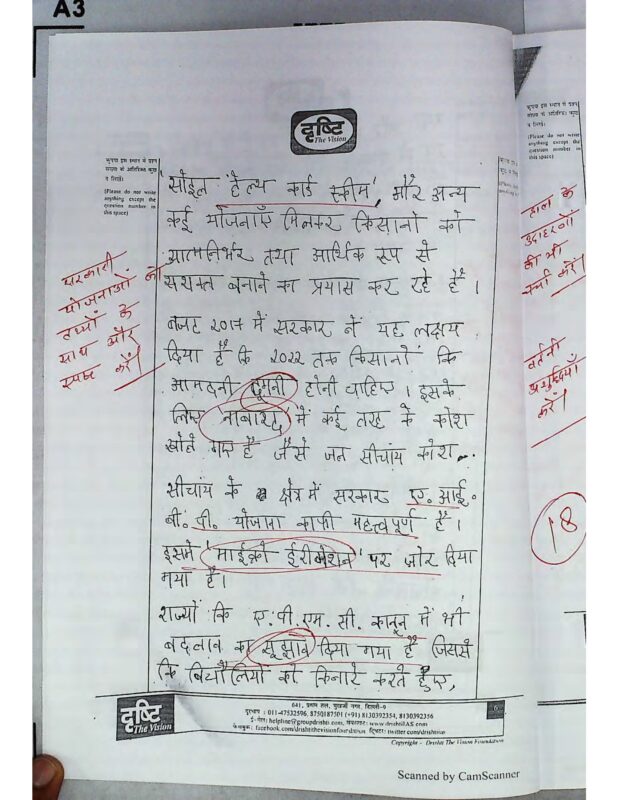 A3
दृष्टि
The Vision
कृपया इस स्थान में प्रश्न
संख्या के अतिरिक्त कुछ
न लिखें।
(Please do not write
anything except the
question number in
this space)
'सोइल हेल्थ कार्ड स्कीम', और अन्य
कई योजनाएँ मिलकर किसानों को
आत्मनिर्भर तथा आर्थिक रूप से
सशक्त बनाने का प्रयास कर रहे हैं।
बजट 2017 में सरकार नें यह लक्षय
दिया है कि 2022 तक किसानों कि
आमदनी दूगनी होनी चाहिए। इसके
लिए 'नाबार्ड' में कई तरह के कोश
खोले गए हैं जैसे जन सीचांय कोश..
सीचांय के क्षेत्र में सरकार ए. आई.
बी. पी. योजना काफी महत्वपूर्ण है।
इसमें 'माईक्रो ईरीगेशन' पर जोर दिया
गया है।
राज्यों कि ए.पी.एम.सी. कानून में भी
बदलाव का सूझाव दिया गया है जिससे
कि बिचौलियों को किनारे करते हुए,
सरकारी
योजनाओं को
तथ्यों के
साथ और
स्पष्ट करें।
कृपया इस स्थान में प्रश्न
संख्या के अतिरिक्त कुछ
न लिखें।
(Please do not write
anything except the
question number in
this space)
हाल के
उदाहरणों
की भी
चर्चा करें।
वर्तनी
अशुद्धियाँ
करें।
18
दृष्टि
The Vision
641, प्रथम तल, मुखर्जी नगर, दिल्ली-9
दूरभाष : 011-47532596, 8750187501 (+91) 8130392354, 8130392356
ई-मेल: helpline@groupdrishti.com, वेबसाइट: www.drishtiIAS.com
फेसबुक: facebook.com/drishtithevisionfoundation ट्विटर: twitter.com/drishtiias
6
Copyright - Drishti The Vision Foundation
Scanned by CamScanner